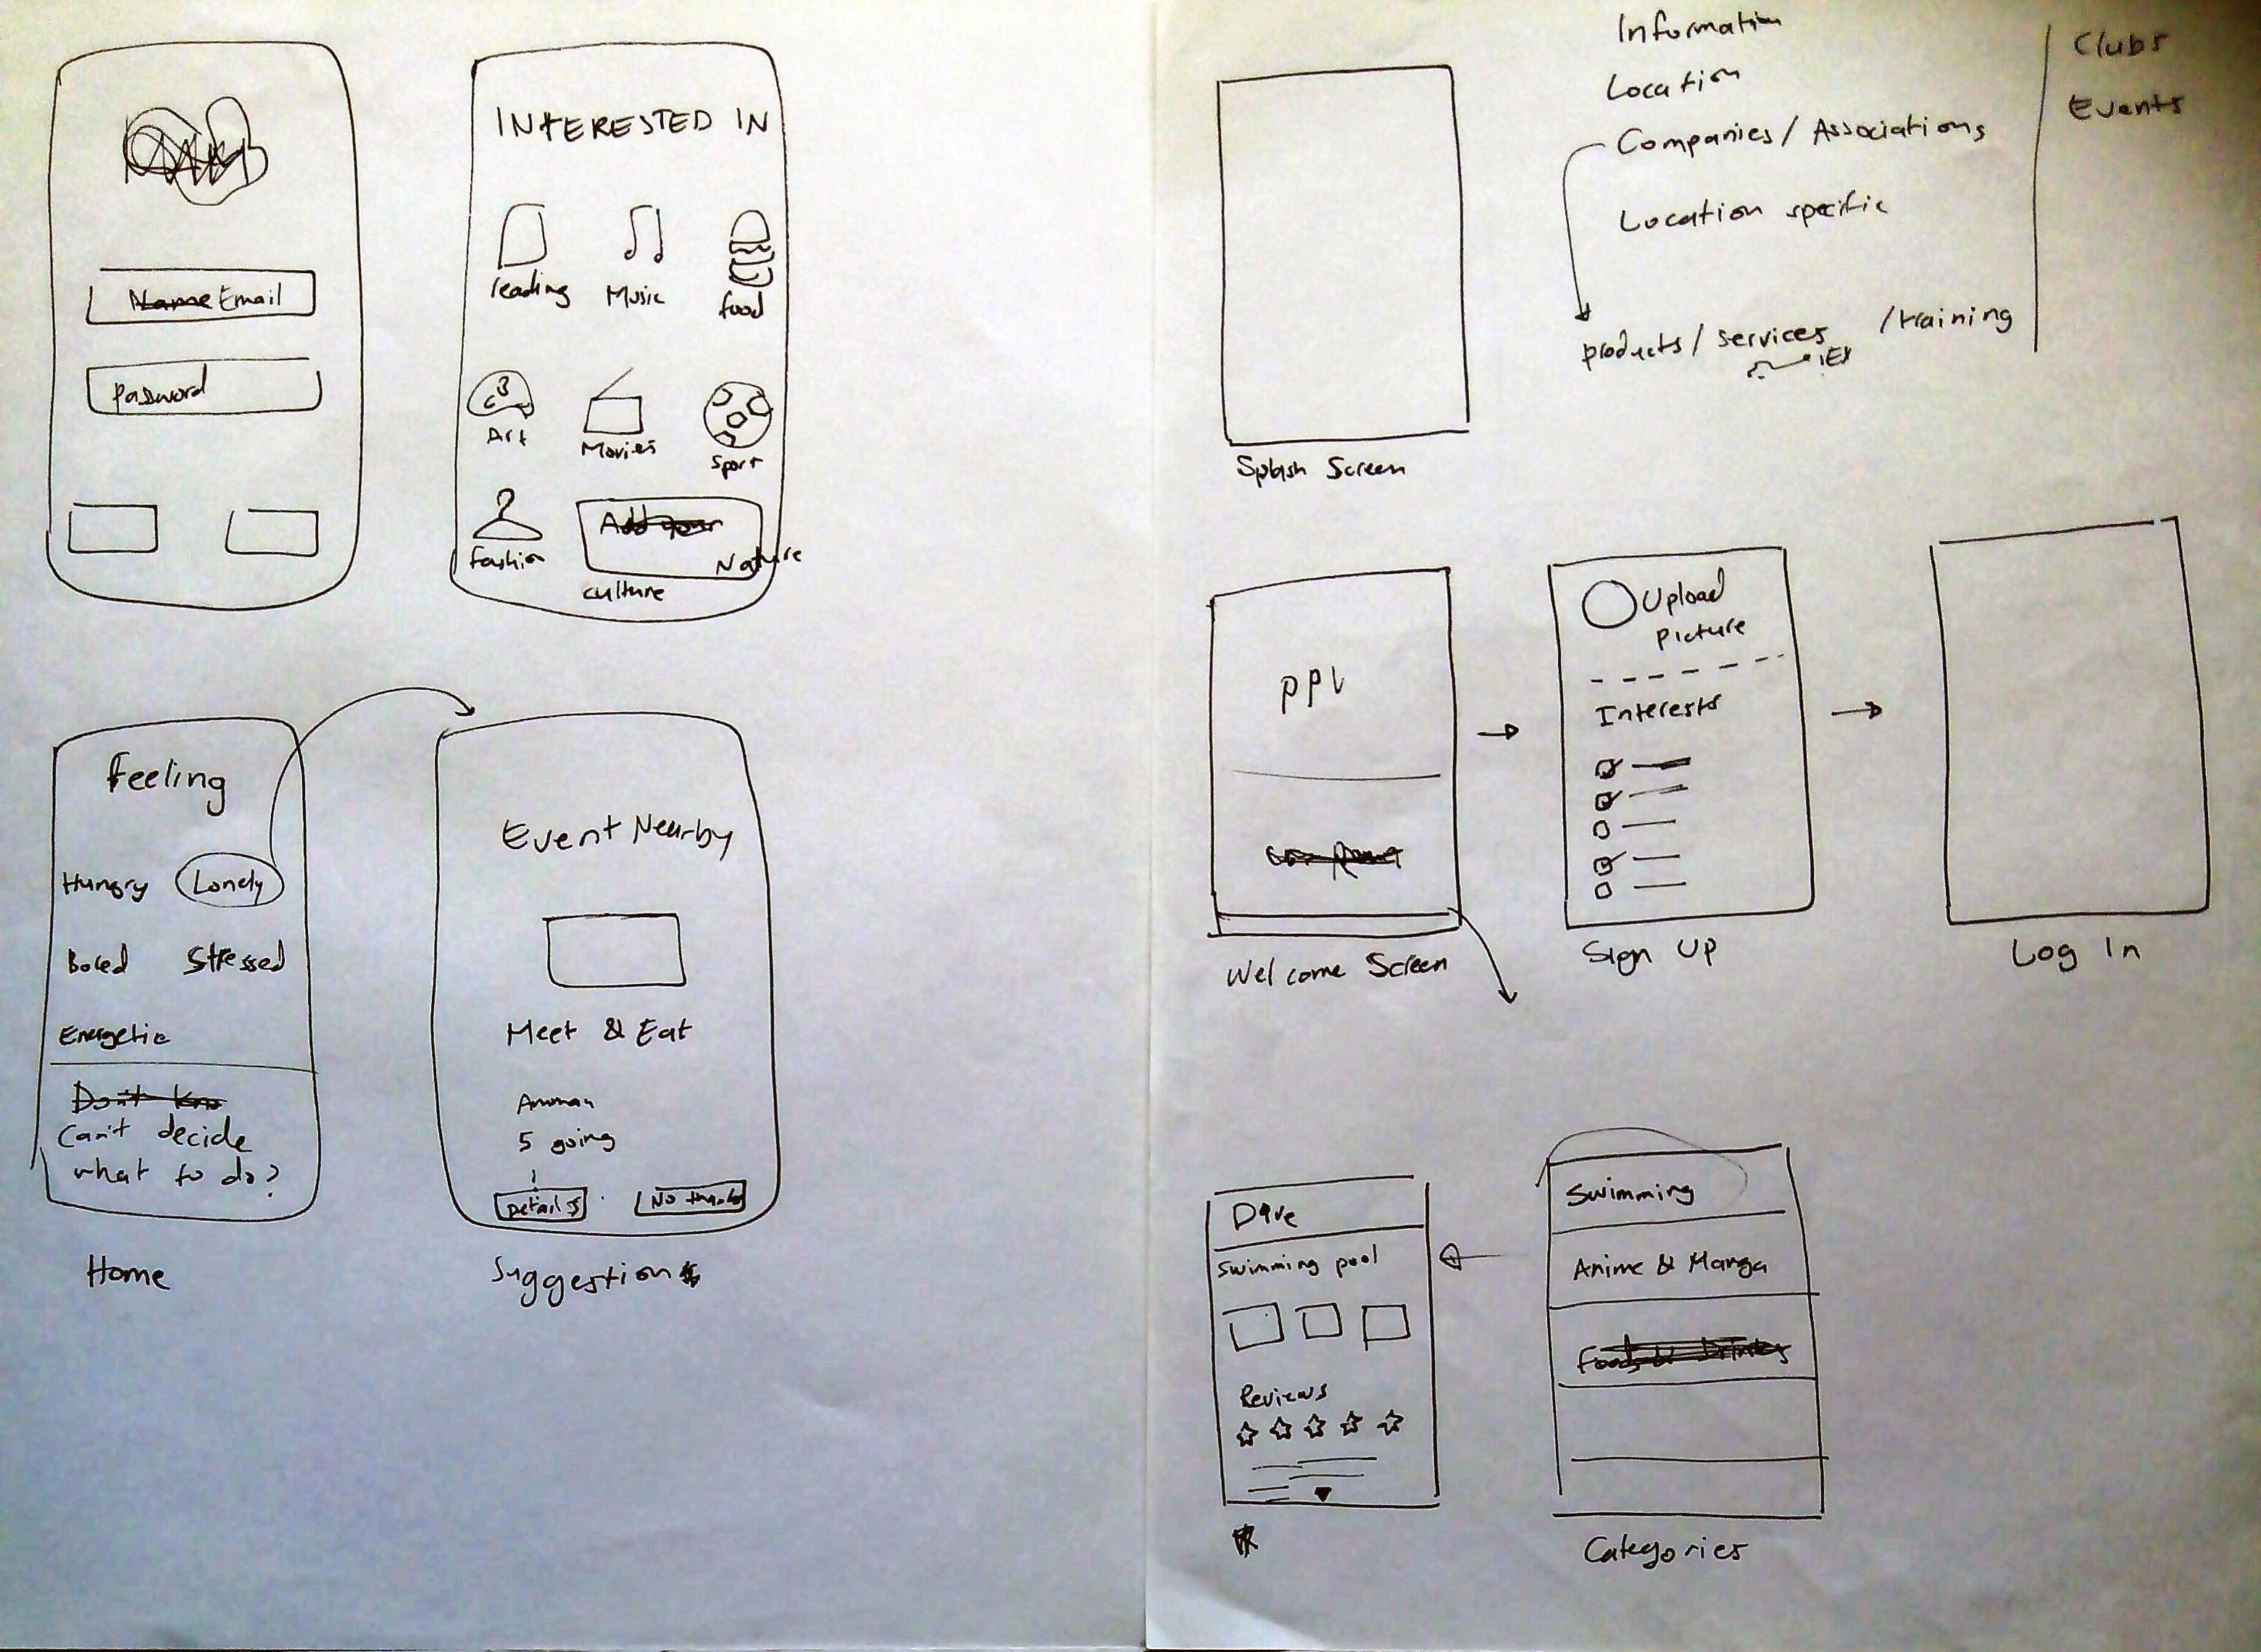 Name Email
Password
INTERESTED IN
reading
Music
food
Art
Movies
Sport
fashion
Add your
Nature
culture
Feeling
Hungry
Lonely
Bored
Stressed
Energetic
Don't kno
Can't decide
what to do?
Home
Event Nearby
Meet & Eat
Amman
5 going
Details
No thanks
Suggestion
Splash Screen
Information
Location
Companies / Associations
Location specific
products / services / training
Clubs
Events
ppl
Welcome Screen
Upload
picture
Interests
Sign Up
Log In
Dive
Swimming pool
Reviews
Swimming
Anime & Manga
Foods & Drinks
Categories